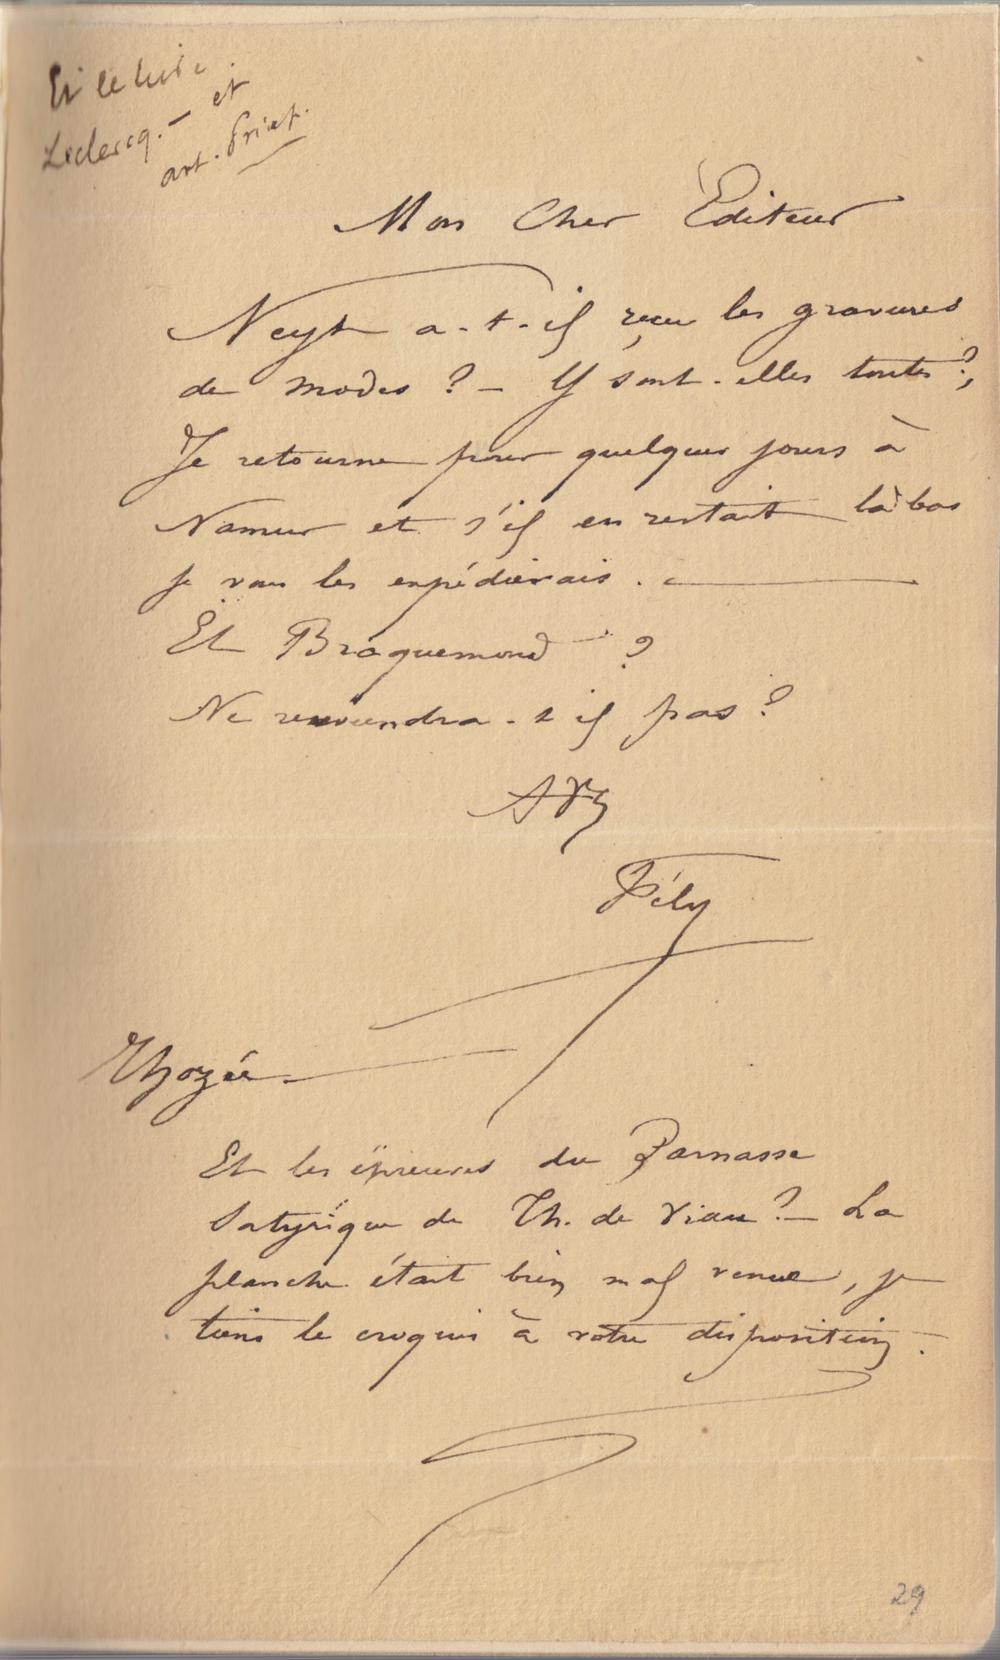 Et le livre
Leclercq. — et
art.
Mon Cher Éditeur
Neyt a-t-il reçu les gravures
de modes ? — Y sont-elles toutes ?,
Je retourne pour quelques jours à
Namur et s'il en restait là bas
je vous les expédierais. —
Et Braquemond ?
Ne reviendra-t il pas ?
Fély
Thozée —
Et les épreuves du Parnasse
Satyrique de Th. de Viau ? — La
planche était bien mal venue, je
tiens le croquis à votre disposition.
29